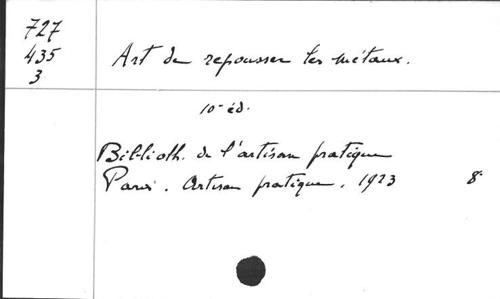 727
435
3
Art de repousser les métaux.
10e éd.
Biblioth. de l'artisan pratique
Paris. Artisan pratique. 1923 8°